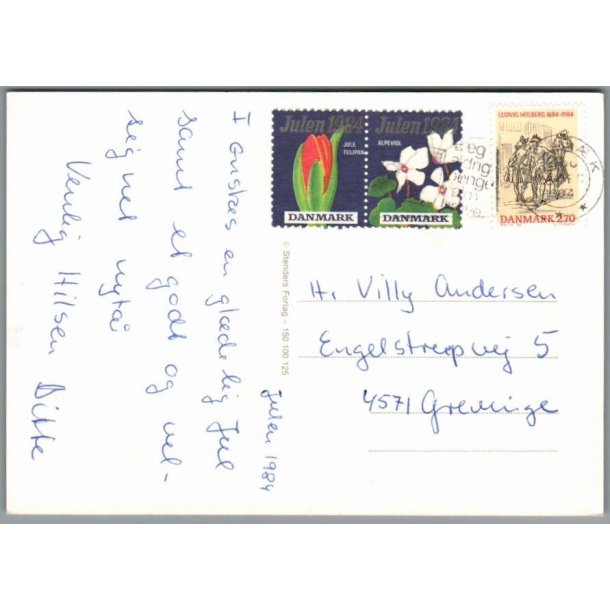 Julen 1984
JULE
TULIPAN
DANMARK
Julen 1984
ALPEVIOL
DANMARK
LUDVIG HOLBERG 1684-1984
DANMARK 2.70
Julen 1984
I ønskes en glædelig Jul
samt et godt og vel-
signet nytår
Venlig Hilsen Ditte
© Stenders Forlag - 150 100 125
Hr. Villy Andersen
Engelstrupvej 5
4571 Grevinge